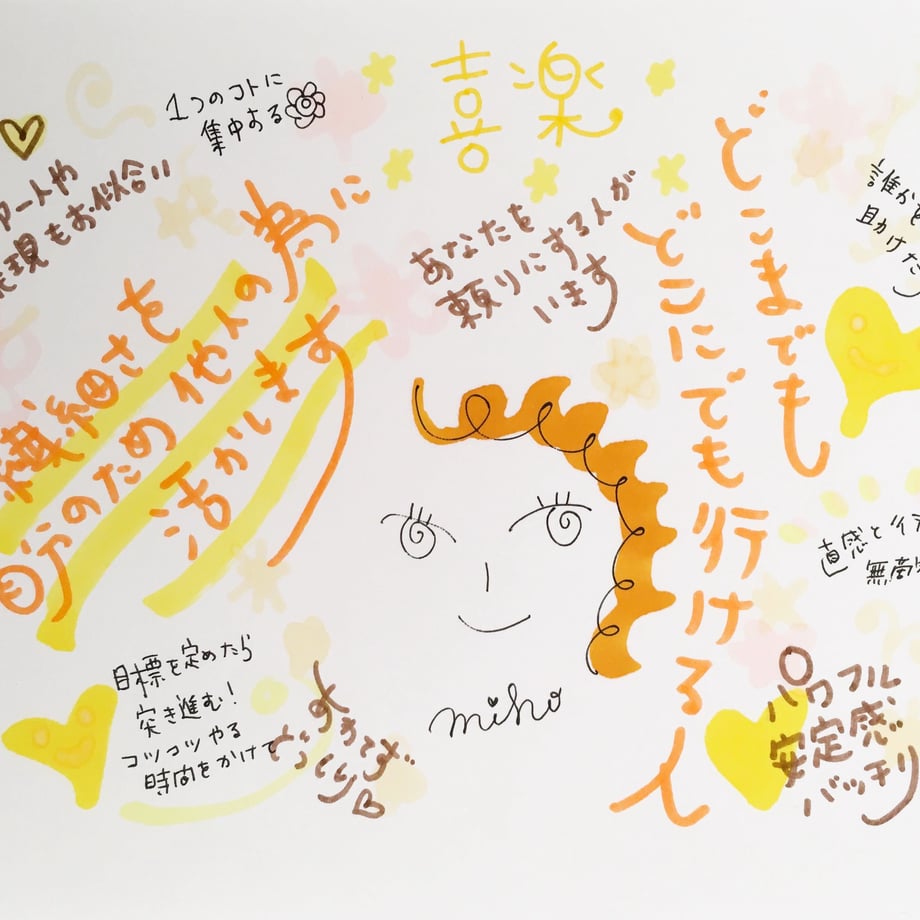 喜楽
1つのコトに
集中する
アートや
表現もお似合い
繊細さを
自分のため他人の為に
活かします
あなたを
頼りにする人が
います
どこまでも
どこにでも行ける人
誰かを
助けた
直感と行
無敵
miho
目標を定めたら
突き進む!
コツコツやる
時間をかけて
あわてず
じっくり
パワフル
安定感
バッチリ